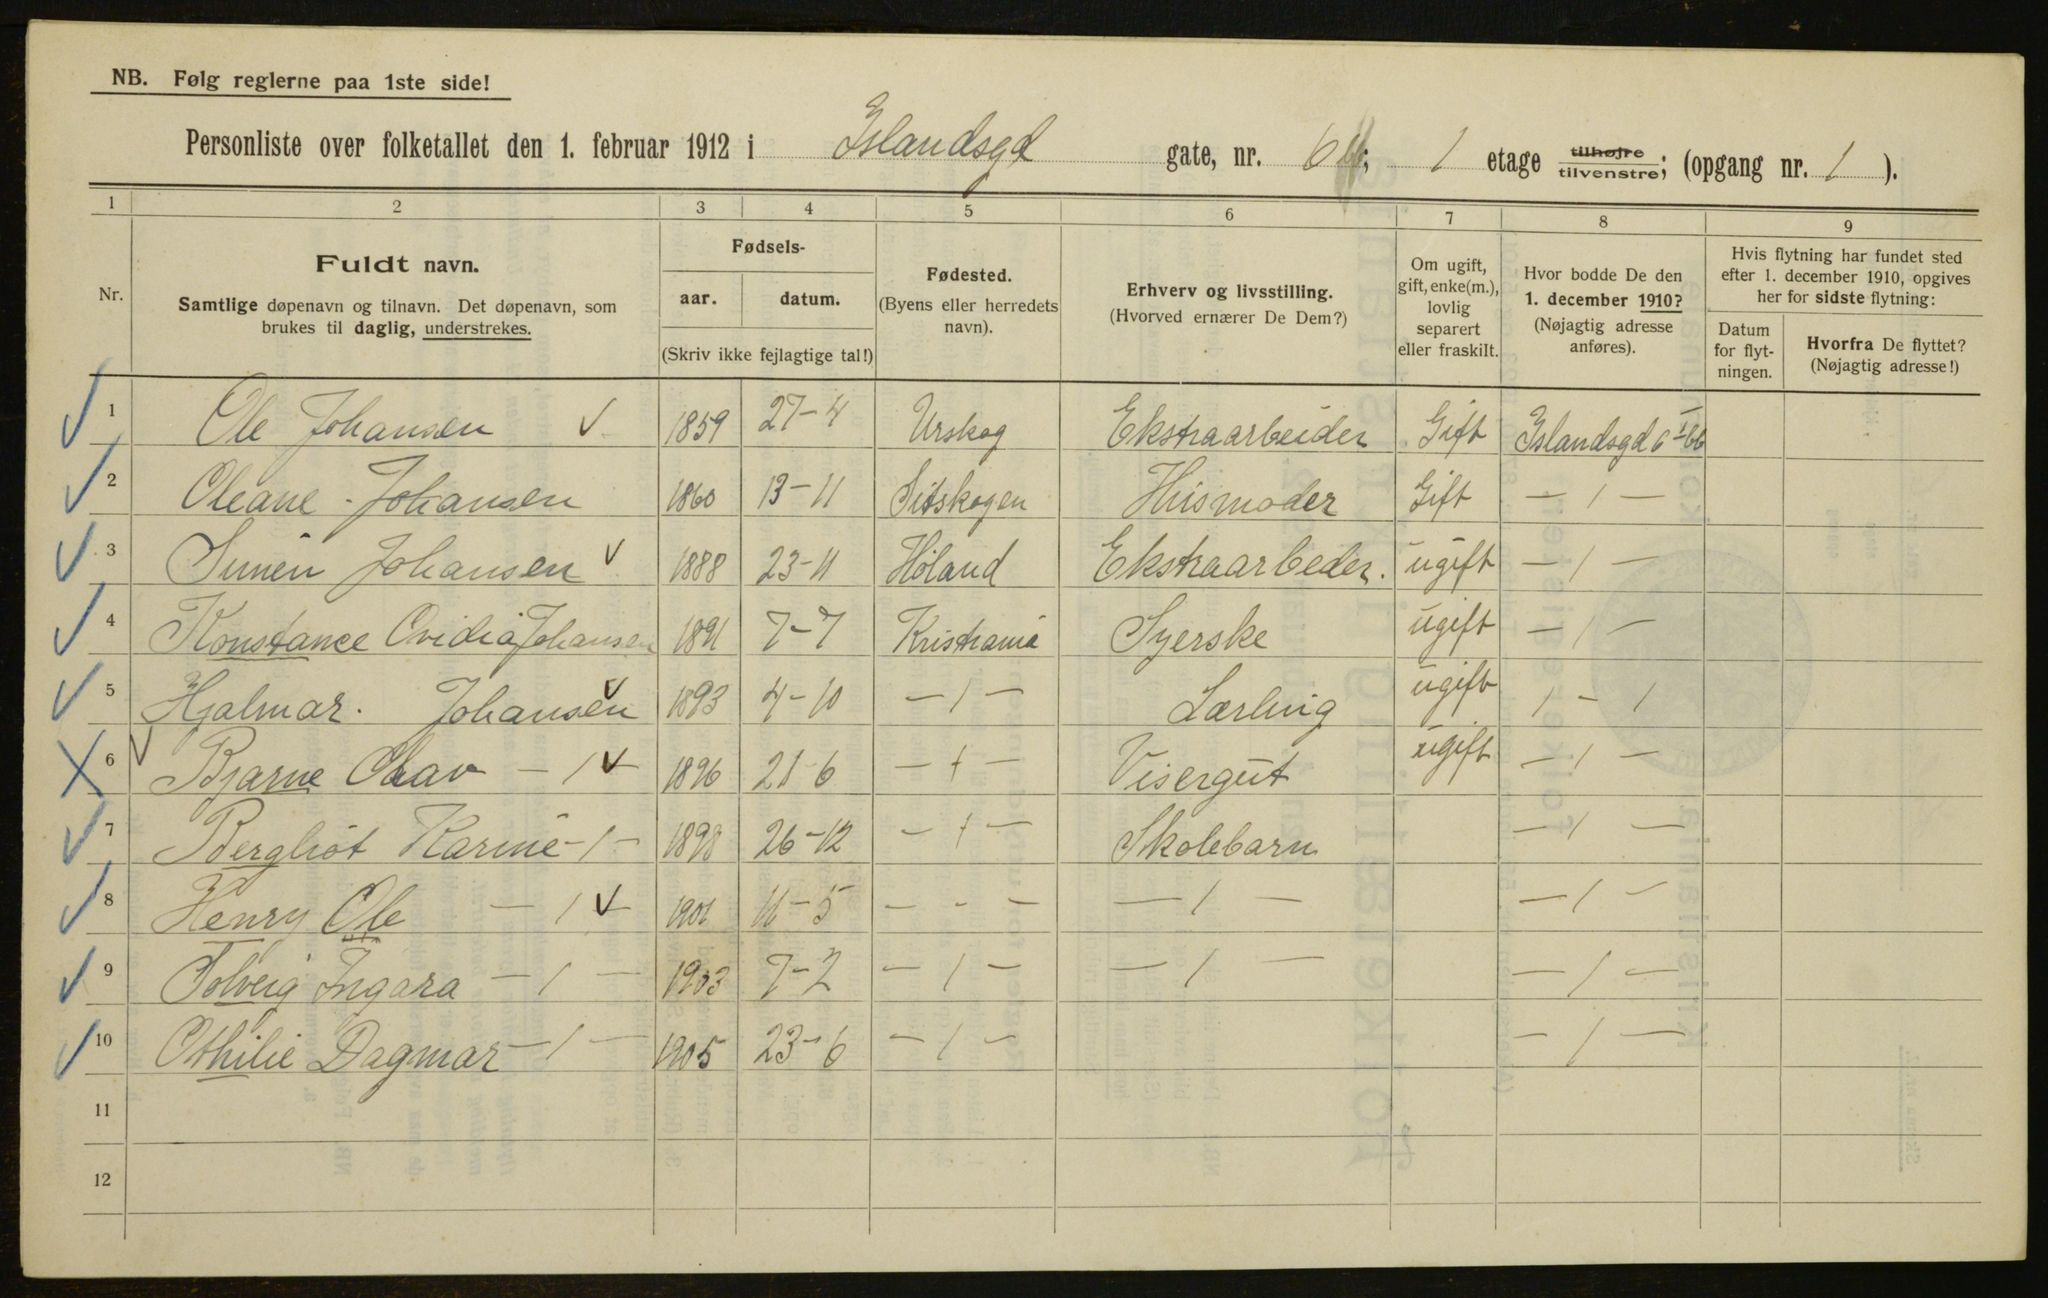 NB. Følg reglerne paa 1ste side!
Personliste over folketallet den 1. februar 1912 i Islandsgd gate, nr. 6; 1 etage tilhøjre tilvenstre; (opgang nr. 1).
1 2 3 4 5 6 7 8 9
Nr.
Fuldt navn.
Samtlige døpenavn og tilnavn. Det døpenavn, som
brukes til daglig, understrekes.
Fødsels-
aar. datum.
(Skriv ikke fejlagtige tal!)
Fødested.
(Byens eller herredets
navn).
Erhverv og livsstilling.
(Hvorved ernærer De Dem?)
Om ugift,
gift, enke(m.),
lovlig
separert
eller fraskilt.
Hvor bodde De den
1. december 1910?
(Nøjagtig adresse
anføres).
Hvis flytning har fundet sted
efter 1. december 1910, opgives
her for sidste flytning:
Datum
for flyt-
ningen.
Hvorfra De flyttet?
(Nøjagtig adresse!)
1 Ole Johansen 1859 27-4 Urskog Ekstraarbeider Gift Islandsgd 6
2 Oleane Johansen 1860 13-11 Sitskogen Husmoder Gift — 1 —
3 Simen Johansen 1888 23-11 Høland Ekstraarbeder. ugift — 1 —
4 Konstance Ovidia Johansen 1891 7-7 Kristiania Syerske ugift — 1 —
5 Hjalmar. Johansen 1893 4-10 — 1 — Lærling ugift 1 - 1
6 Bjarne Olav — 1 — 1896 21-6 — 1 — Visergut ugift — 1 —
7 Bergliot Karine - 1 - 1898 26-12 — 1 — Skolebarn — 1 —
8 Henry Ole — 1 — 1901 11-5 - - - — 1 — — 1 —
9 Solveig Ingara — 1 — 1903 7-2 — 1 — — 1 — — 1 —
10 Othilie Dagmar — 1 — 1905 23-6 — 1 — — 1 —
11
12